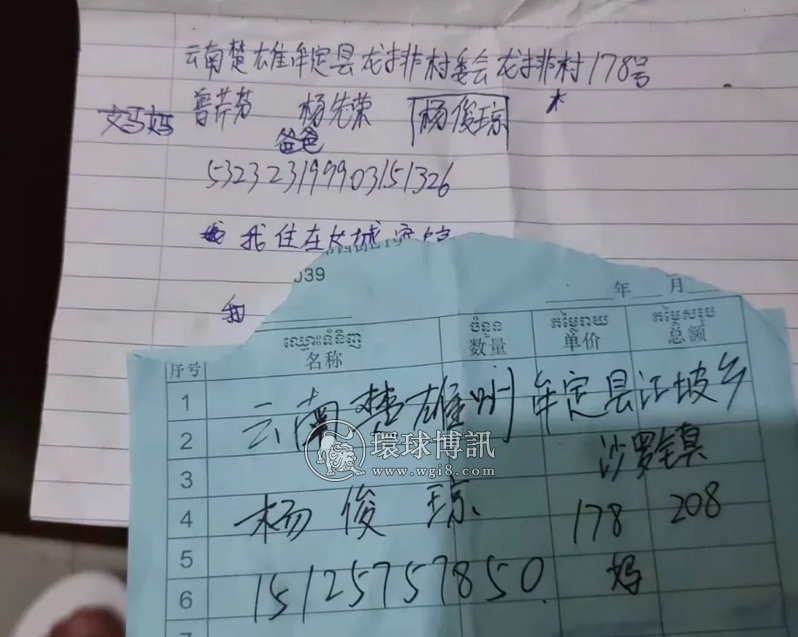 云南楚雄牟定县龙排村委会龙排村178号
妈妈 普芹芬 杨先荣 杨俊琼
爸爸
532323199903151326
我住在
我
039
年 月
ឈ្មោះទំនិញ ចំនួន តម្លៃរាយ តម្លៃសរុប
序号 名称 数量 单价 总额
1
云南楚雄州牟定县江坡乡
2
沙罗
3
環球博訊
www.wgi8.com
4 杨俊琼 178 208
5
6 15125757850 妈